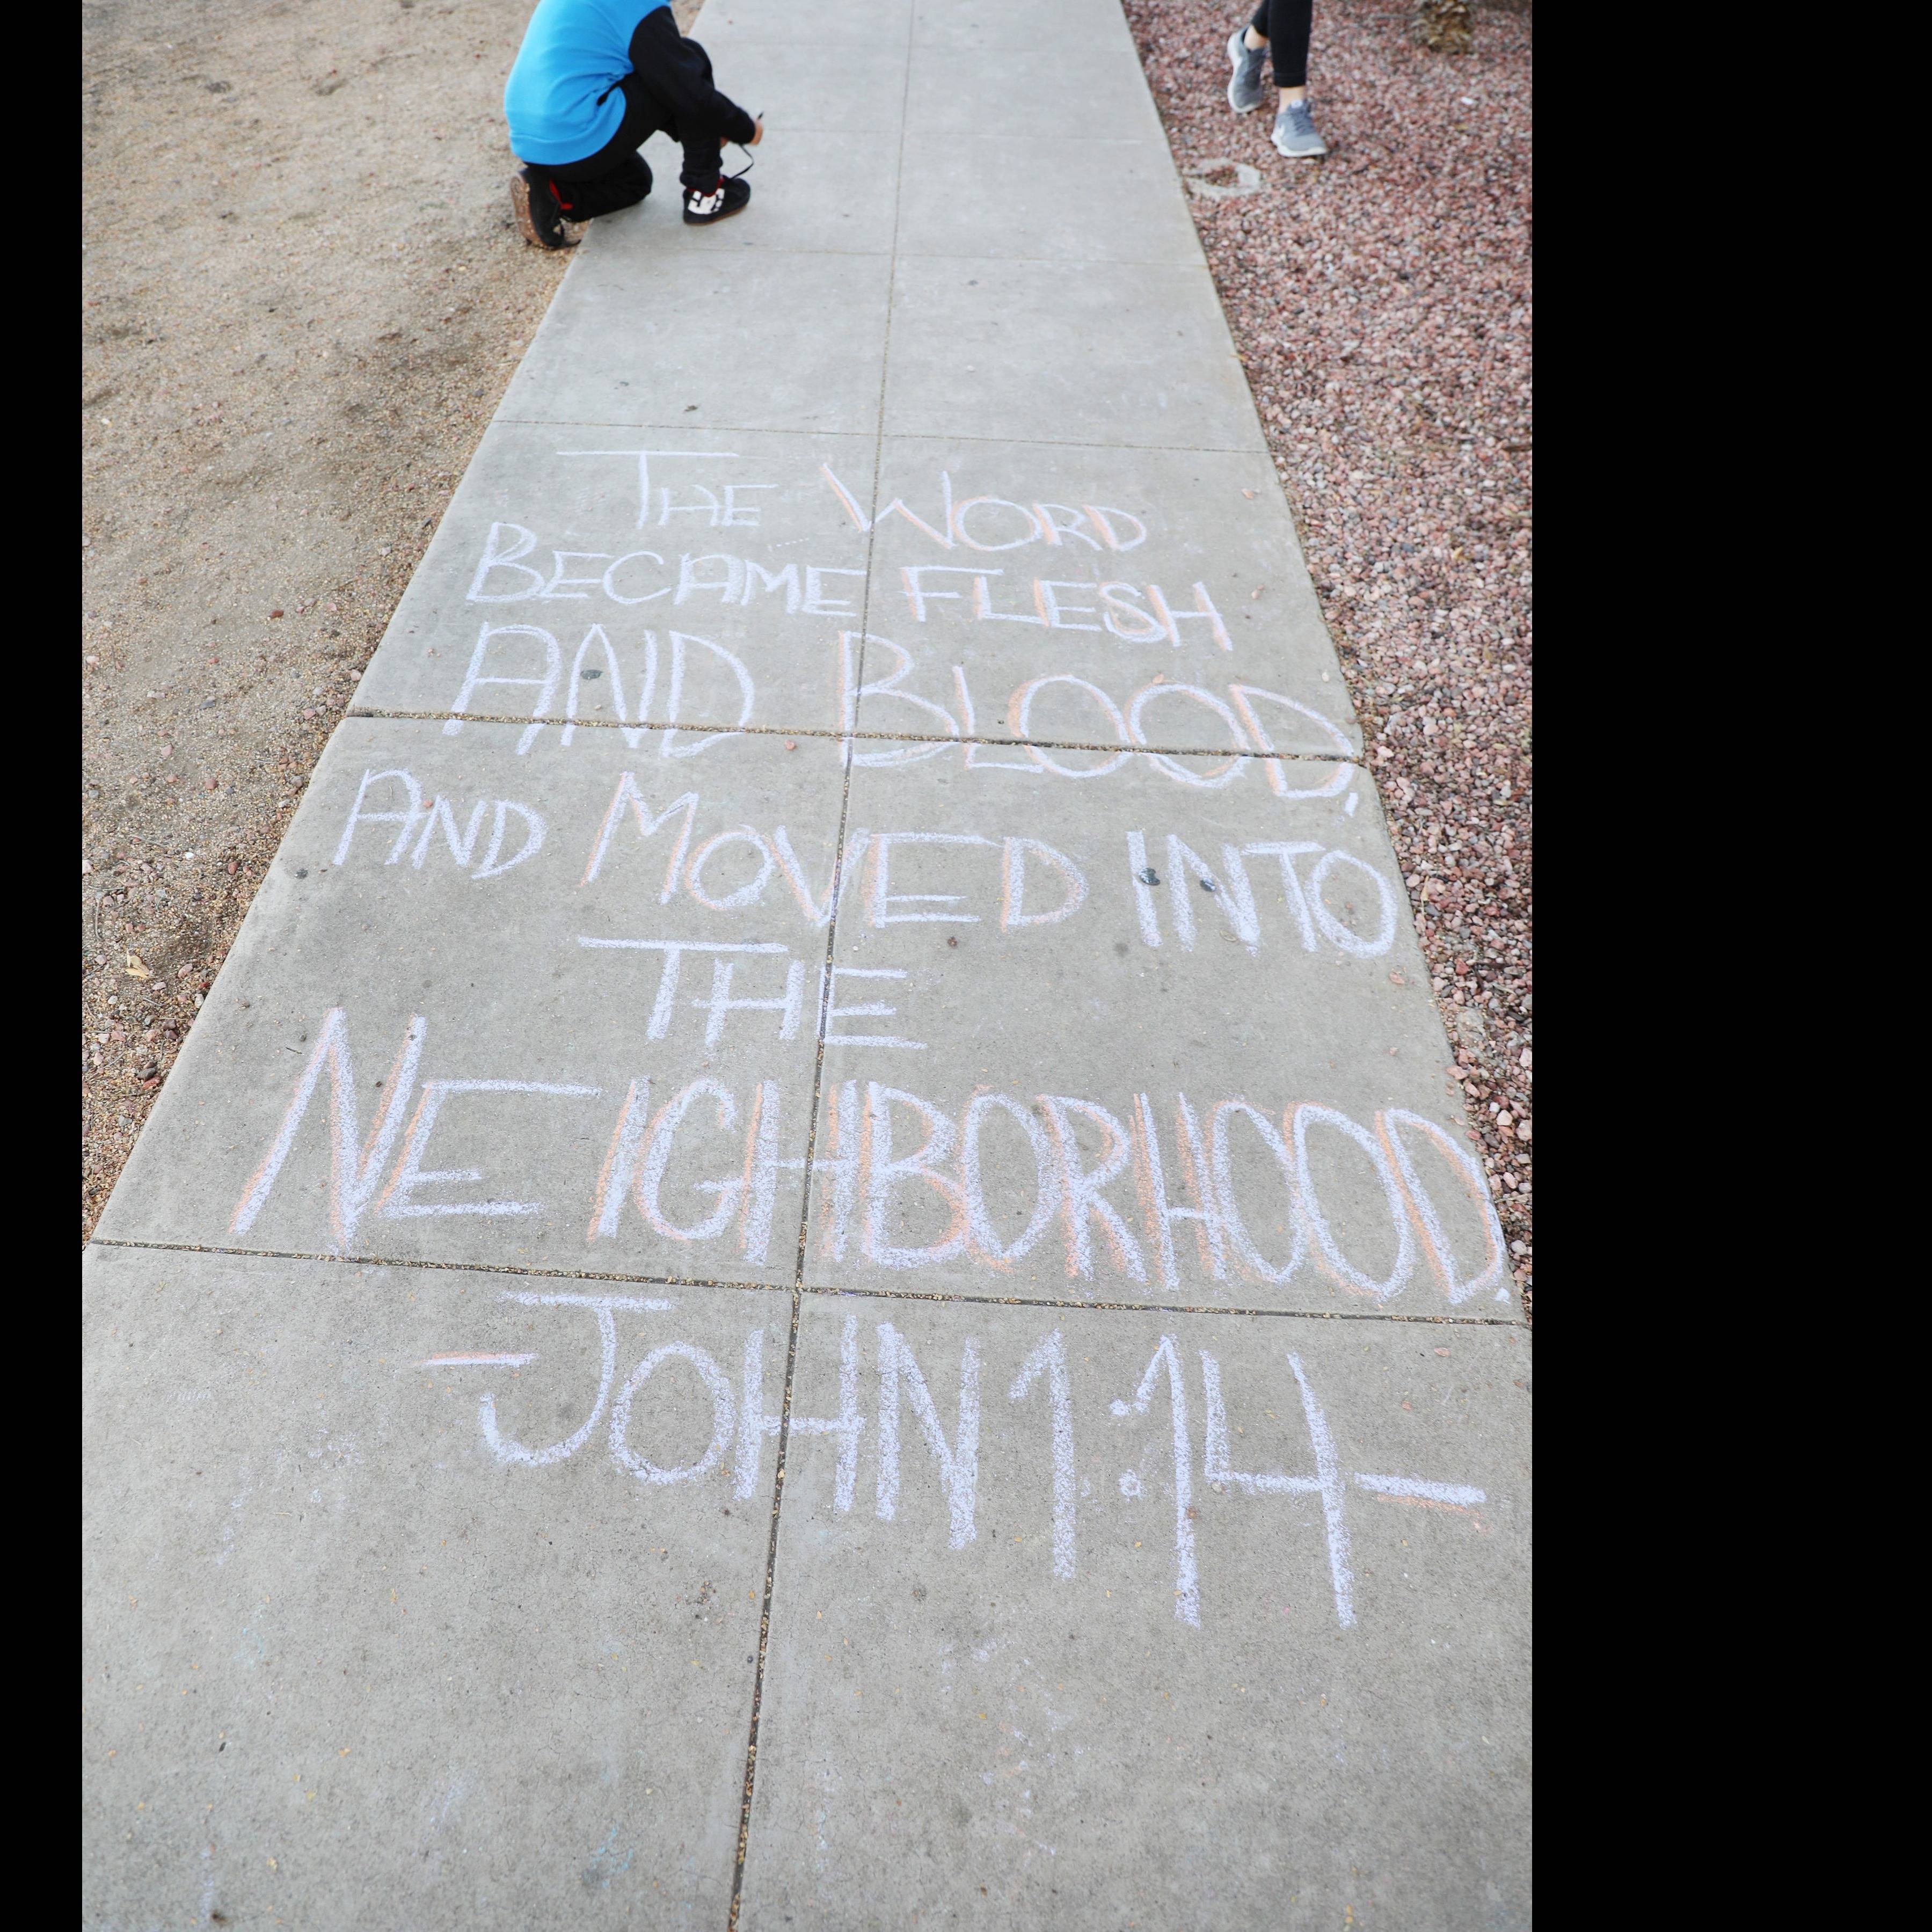 THE WORD
BECAME FLESH
AND BLOOD,
AND MOVED INTO
THE
NEIGHBORHOOD.
-JOHN 1:14-